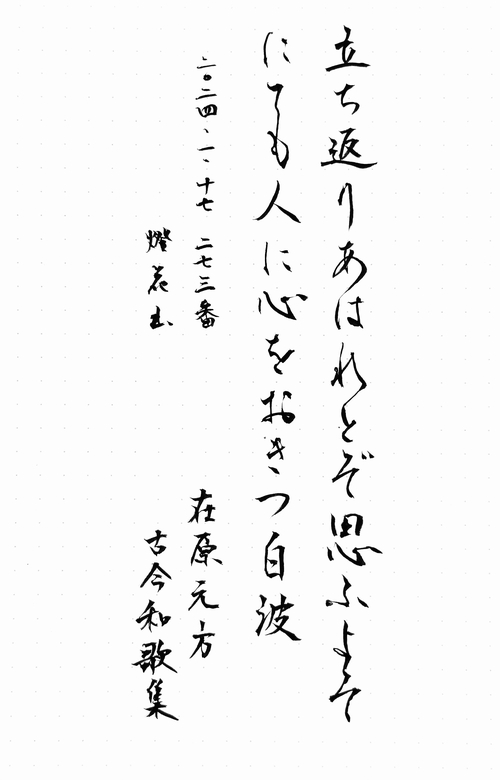 立ち返りあはれとぞ思ふよそ
にても人に心をおきつ白波
二〇二四、一、十七 二七三番
在原元方
燈花書
古今和歌集